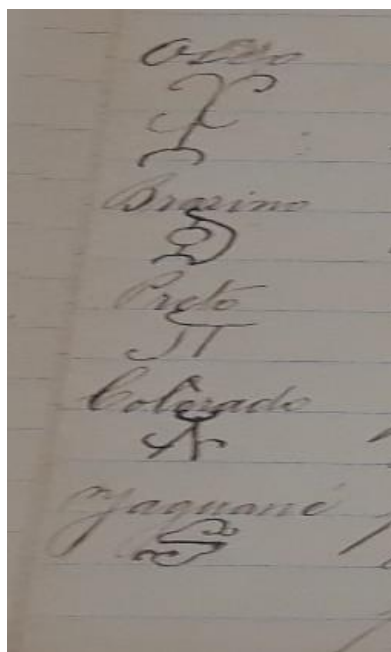 Osco
Brazino
Preto
Colorado
Yaguané